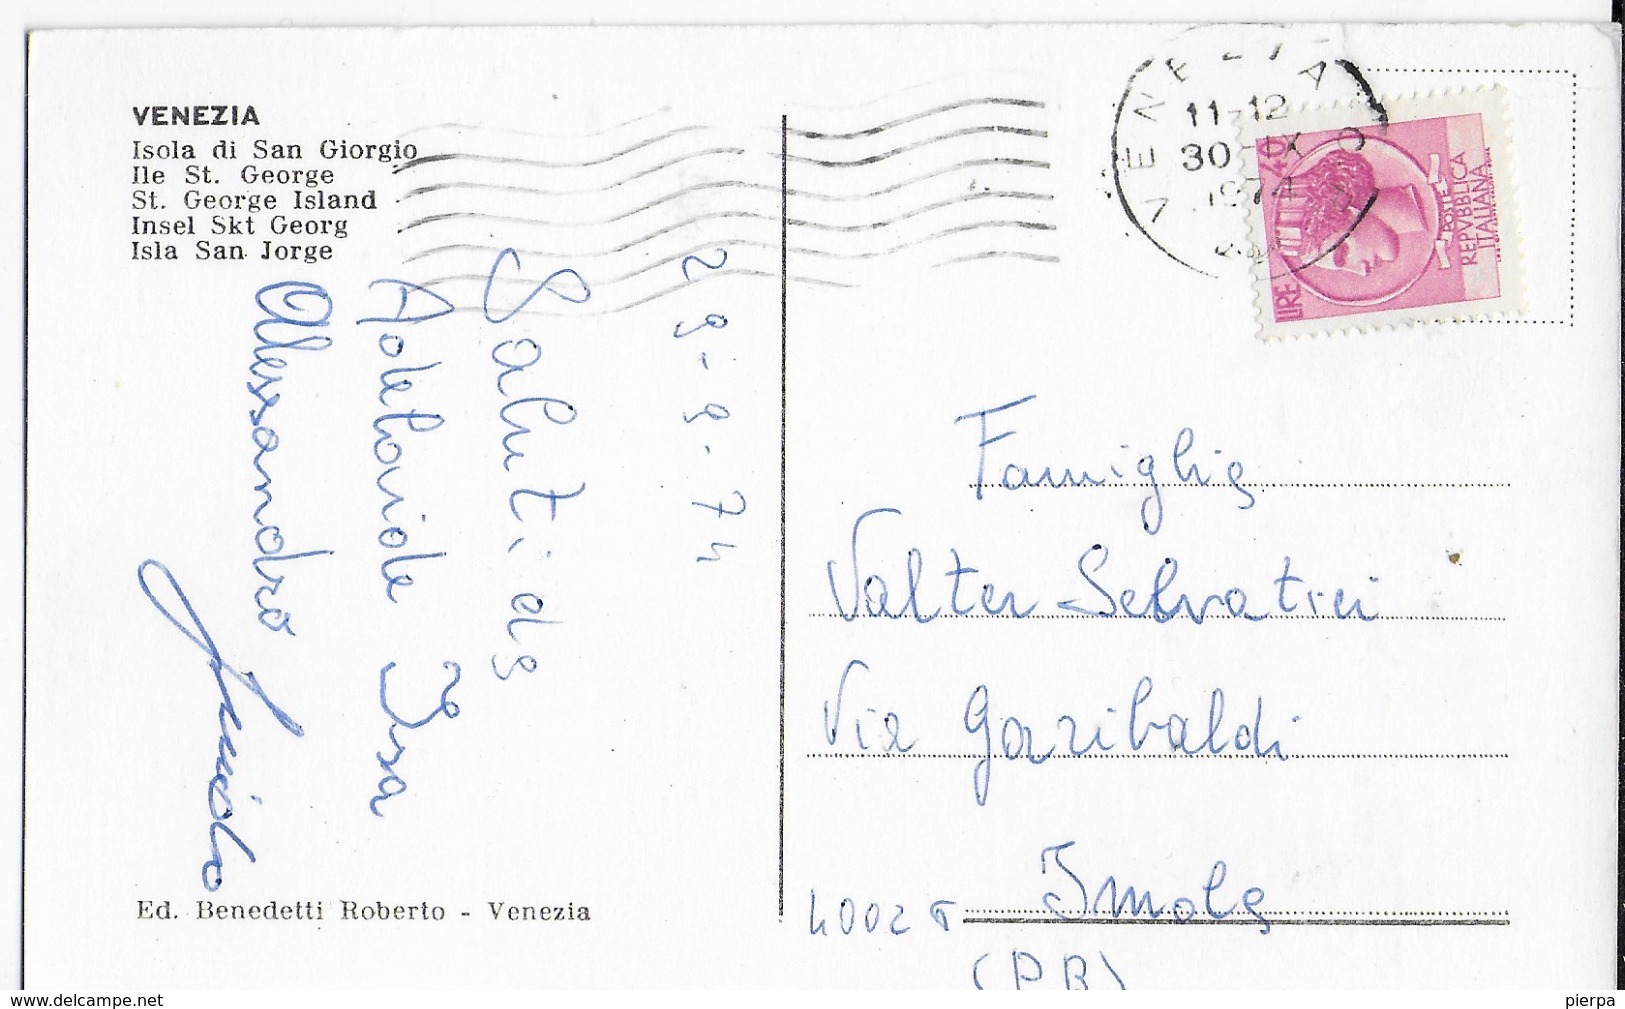 VENEZIA
Isola di San Giorgio
Ile St. George
St. George Island
Insel Skt Georg
Isla San Jorge
29-9-74
Saluti da
Adelaide Isa
Alessandro
Ed. Benedetti Roberto - Venezia
VENEZIA
11-12
30 IX
1974
LIRE 40
POSTE
REPVBBLICA
ITALIANA
Famiglia
Valter Selvatici
Via Garibaldi
40026 Imola
(PB)
www.delcampe.net
pierpa